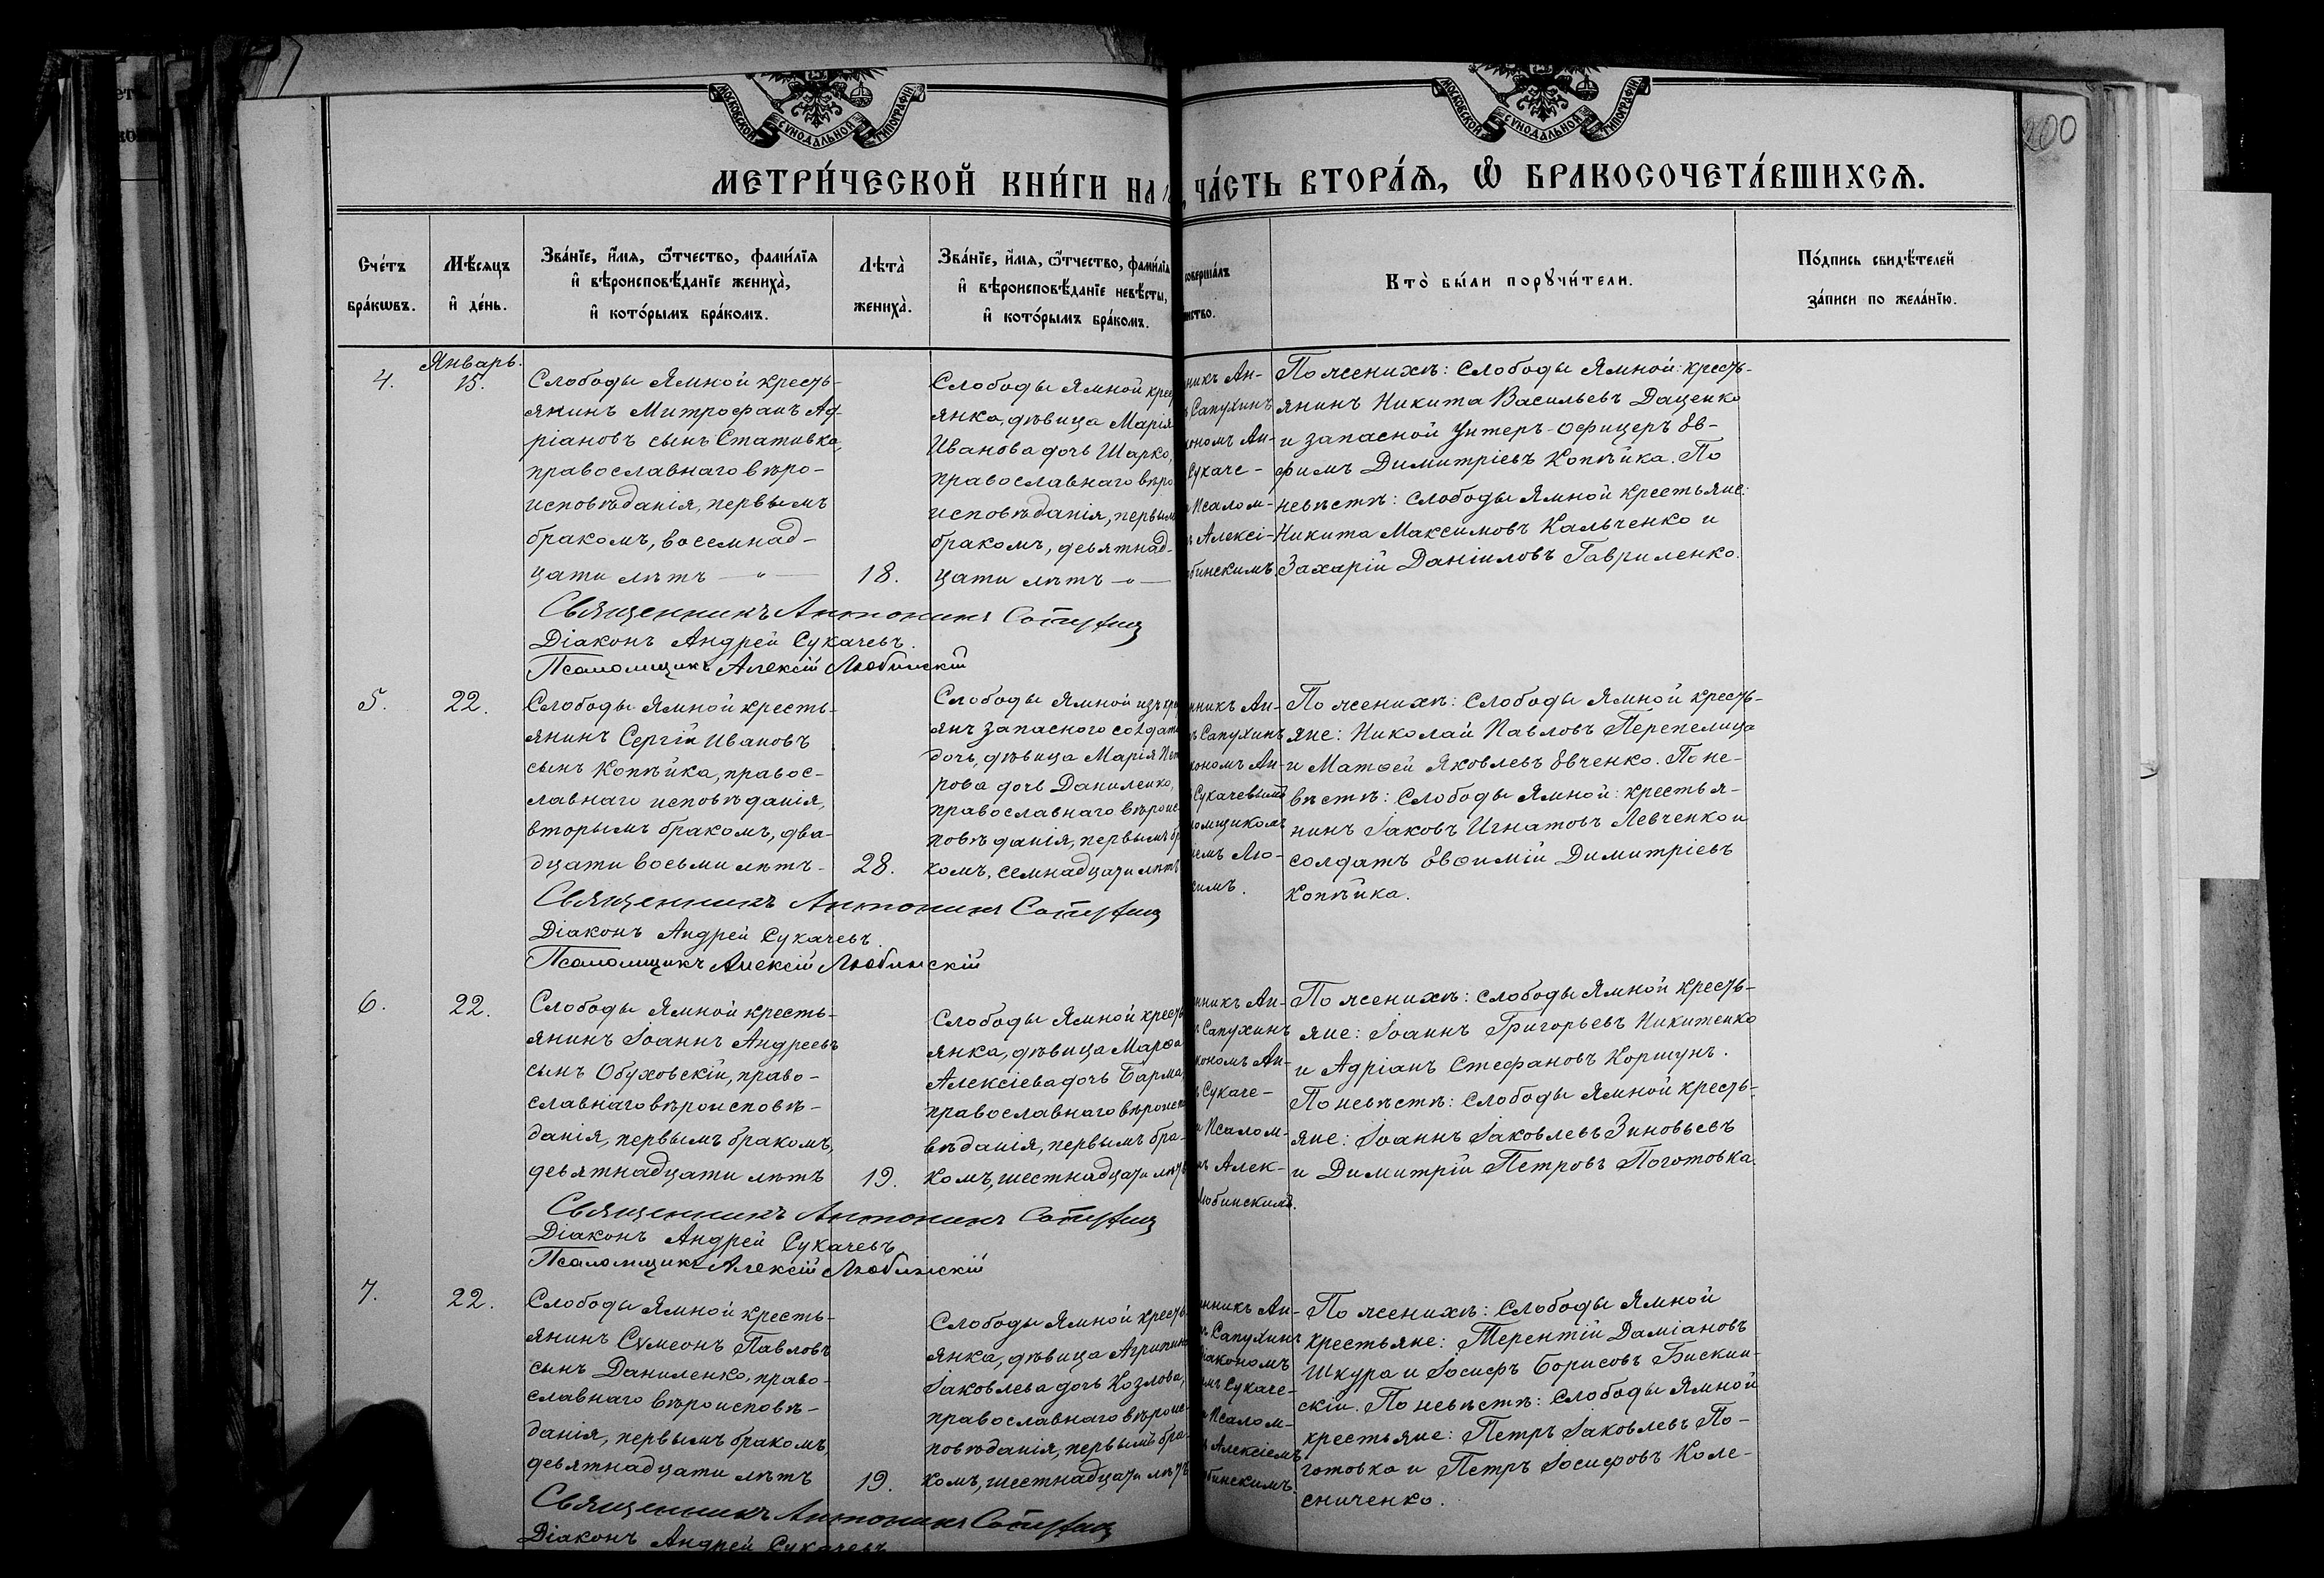 МОСКОВСКОЙ СѴНОДАЛЬНОЙ ТИПОГРАФІИ
МОСКОВСКОЙ СѴНОДАЛЬНОЙ ТИПОГРАФІИ
200
МЕТРИ́ЧЕСКОЙ КНИ́ГИ НА
ЧА́СТЬ ВТОРА́Ѧ, Ѽ БРАКОСОЧЕТА́ВШИХСѦ.
Сче́тъ
бра́кѡвъ.
Мѣ́сяцъ
и҆ де́нь.
Зва́нїе, и҆́мя, ѻ҆́тчество, фами́лїя
и҆ вѣроисповѣ́данїе жениха̀,
и҆ кото́рымъ бра́комъ.
Лѣта̀
жениха̀.
Зва́нїе, и҆́мя, ѻ҆́тчество, фами́лїя
и҆ вѣроисповѣ́данїе невѣ́сты,
и҆ кото́рымъ бра́комъ.
совершáлъ
нство.
Кто̀ бы́ли порꙋчи́тели.
По́дпись свидѣ́телей
за́писи по жела́нїю.
4.
Январь.
15.
Слободы Ямной кресть-
янинъ Митрофанъ Ад-
ріановъ сынъ Статовка,
православнаго вѣро-
исповѣданія, первымъ
бракомъ, восемнад-
цати лѣтъ — " —
18.
Слободы Ямной крес
янка, дѣвица Марія
Иванова дочь Шарко,
православнаго вѣро
исповѣданія, первым
бракомъ, девятнад-
цати лѣтъ — " —
никъ Ан-
Сапухинъ
кономъ Ан-
Сукаче-
Псалом-
Алексі-
бинскимъ.
По женихѣ: Слободы Ямной: кресть-
янинъ Никита Васильевъ Даценко
и запасной Унтеръ-Офицеръ Ев-
фимъ Димитріевъ Копѣйка. По
невѣстѣ: Слободы Ямной крестьяне:
Никита Максимовъ Кальченко и
Захарій Даніиловъ Гавриленко.
Священникъ Антонинъ Сапухинъ
Діаконъ Андрей Сукачевъ.
Псаломщикъ Алексій Любинскій
5.
22.
Слободы Ямной кресть-
янинъ Сергій Ивановъ
сынъ Копѣйка, правос-
лавнаго исповѣданія,
вторымъ бракомъ, два-
дцати восьми лѣтъ-
28.
Слободы Ямной изъ кр
янъ запасного солдата
дочь, дѣвица Марія Пет
рова дочь Даниленко,
православнаго вѣроис
повѣданія, первымъ бр
комъ, семнадцати лѣтъ
нникъ Ан-
Сапухинъ
кономъ Ан-
Сукачевымъ
омщикомъ
іемъ Лю-
скимъ.
По женихѣ: Слободы Ямной кресть-
яне: Николай Павловъ Перепелица
и Матѳей Яковлевъ Евченко. По не-
вѣстѣ: Слободы Ямной: крестья-
нинъ Іаковъ Игнатовъ Левченко и
солдатъ Евѳимій Димитріевъ
Копѣйка.
Священникъ Антонинъ Сапухинъ
Діаконъ Андрей Сукачевъ.
Псаломщикъ Алексій Любинскій
6.
22.
Слободы Ямной кресть-
янинъ Іоаннъ Андреевъ
сынъ Обуховскій, право-
славнаго вѣроисповѣ-
данія, первымъ бракомъ,
девятнадцати лѣтъ
19.
Слободы Ямной кресть
янка, дѣвица Марѳа
Алексіева дочь Барма,
православнаго вѣроиспо
вѣданія, первымъ бра-
комъ, шестнадцати лѣтъ
нникъ Ан-
Сапухинъ
кономъ Ан-
Сукаче-
Псалом-
Алек-
Любинскимъ.
По женихѣ: Слободы Ямной кресть-
яне: Іоаннъ Григорьевъ Никитенко
и Адріанъ Стефановъ Коршунъ.
По невѣстѣ: Слободы Ямной кресть-
яне: Іоаннъ Іаковлевъ Зиновьевъ
и Димитрій Петровъ Поготовка.
Священникъ Антонинъ Сапухинъ
Діаконъ Андрей Сукачевъ
Псаломщикъ Алексій Любинскій
7.
22.
Слободы Ямной кресть-
янинъ Сѵмеонъ Павловъ
сынъ Даниленко, право-
славнаго вѣроисповѣ-
данія, первымъ бракомъ,
девятнадцати лѣтъ
19.
Слободы Ямной кресть
янка, дѣвица Агрипина
Іаковлева дочь Козлова,
православнаго вѣроис-
повѣданія, первымъ бра-
комъ, шестнадцати лѣтъ
нникъ Ан-
Сапухинъ
іакономъ
Сукаче-
Псалом-
Алексіемъ
бинскимъ.
По женихѣ: Слободы Ямной
крестьяне: Терентій Даміановъ
Шкура и Іосифъ Борисовъ Бискин-
скій. По невѣстѣ: Слободы Ямной
крестьяне: Петръ Іаковлевъ По-
готовка и Петръ Іосифовъ Коле-
сниченко.
Священникъ Антонинъ Сапухинъ
Діаконъ Андрей Сукачевъ